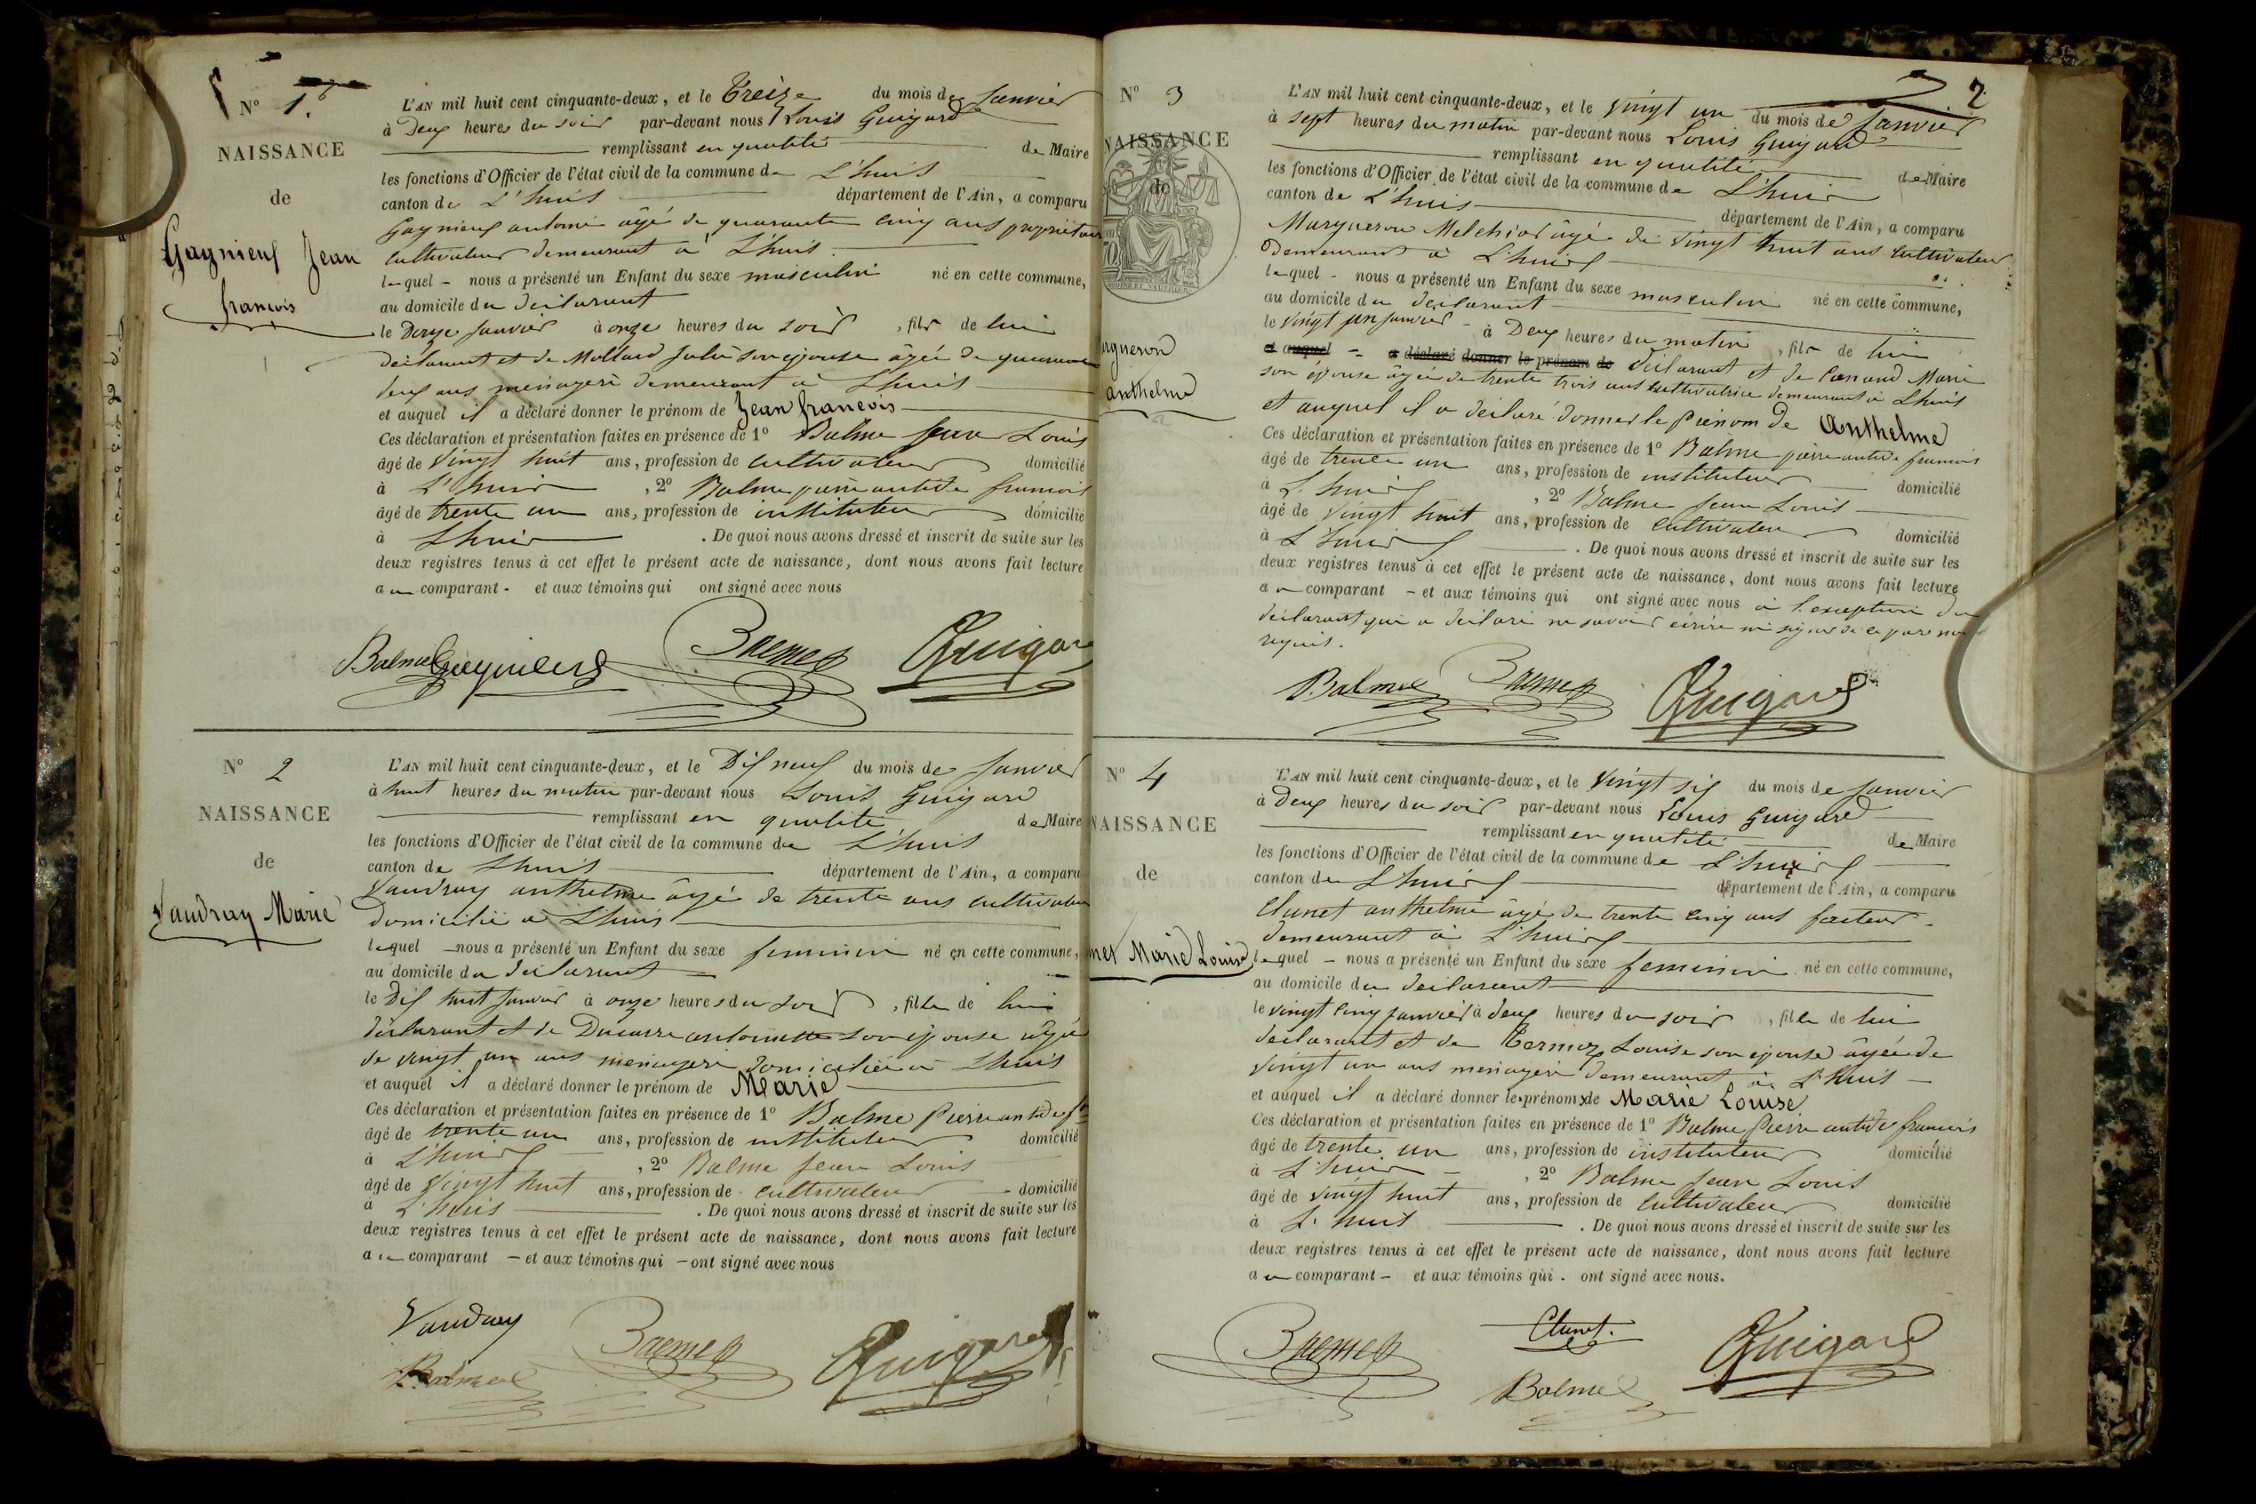 N° 1.
NAISSANCE
de
Gagnieux Jean
françois
L'AN mil huit cent cinquante-deux, et le Treize du mois de Janvier
à Deux heures du soir par-devant nous Louis Guigard
remplissant en qualité de Maire
les fonctions d'Officier de l'état civil de la commune de L'huis
canton de L'huis département de l'Ain, a comparu
Gagnieux antoine âgé de quarante cinq ans propriétaire
cultivateur demeurant à L'huis
lequel nous a présenté un Enfant du sexe masculin né en cette commune,
au domicile du déclarant
le Douze Janvier à onze heures du soir, fils de lui
déclarant et de Mollard Julie son épouse âgée de quarante
deux ans menagere demeurant à Lhuis
et auquel il a déclaré donner le prénom de Jean francois
Ces déclaration et présentation faites en présence de 1° Balme Jean Louis
âgé de vingt huit ans, profession de cultivateur domicilié
à L'huis, 2° Balme pierre antide francois
âgé de trente un ans, profession de instituteur domicilié
à Lhuis. De quoi nous avons dressé et inscrit de suite sur les
deux registres tenus à cet effet le présent acte de naissance, dont nous avons fait lecture
au comparant - et aux témoins qui ont signé avec nous
Balme Gagnieux Balme Guigard
N° 2
NAISSANCE
de
Vaudray Marie
L'AN mil huit cent cinquante-deux, et le Dix neuf du mois de Janvier
à huit heures du matin par-devant nous Louis Guigard
remplissant en qualité de Maire
les fonctions d'Officier de l'état civil de la commune de L'huis
canton de Lhuis département de l'Ain, a comparu
Vaudray anthelme âgé de trente ans cultivateur
domicilié à Lhuis
lequel nous a présenté un Enfant du sexe feminin né en cette commune,
au domicile du déclarant
le Dix huit Janvier à onze heures du soir, fille de lui
déclarant et de Ducarre antoinette son épouse âgée
de vingt un ans menagere domiciliée à Lhuis
et auquel il a déclaré donner le prénom de Marie
Ces déclaration et présentation faites en présence de 1° Balme Pierre antide fois
âgé de trente un ans, profession de instituteur domicilié
à L'huis, 2° Balme Jean Louis
âgé de vingt huit ans, profession de cultivateur domicilié
à L'huis. De quoi nous avons dressé et inscrit de suite sur les
deux registres tenus à cet effet le présent acte de naissance, dont nous avons fait lecture
au comparant - et aux témoins qui - ont signé avec nous
Vaudray Balme Guigard
Balme
2
N° 3
NAISSANCE
de
argueron
anthelme
L'AN mil huit cent cinquante-deux, et le vingt un du mois de Janvier
à sept heures du matin par-devant nous Louis Guigard
remplissant en qualité de Maire
les fonctions d'Officier de l'état civil de la commune de L'huis
canton de L'huis département de l'Ain, a comparu
Margueron Melchior âgé de vingt huit ans cultivateur
Demeurant à L'huis
lequel - nous a présenté un Enfant du sexe masculin né en cette commune,
au domicile du déclarant
le vingt un Janvier à Deux heures du matin, fils de lui
et auquel a déclaré donner le prénom de déclarant et de Marie
son épouse âgée de trente trois ans cultivatrice demeurant à Lhuis
et auquel il a déclaré donner le prénom de Anthelme
Ces déclaration et présentation faites en présence de 1° Balme pierre antide francois
âgé de trente un ans, profession de instituteur domicilié
à L'huis, 2° Balme Jean Louis
âgé de vingt huit ans, profession de cultivateur domicilié
à L'huis. De quoi nous avons dressé et inscrit de suite sur les
deux registres tenus à cet effet le présent acte de naissance, dont nous avons fait lecture
au comparant - et aux témoins qui ont signé avec nous à l'exception du
déclarant qui a déclaré ne savoir écrire ni signer de ce par nous
requis.
Balme Balme Guigard
N° 4
NAISSANCE
de
net Marie Louise
L'AN mil huit cent cinquante-deux, et le vingt six du mois de Janvier
à Deux heures du soir par-devant nous Louis Guigard
remplissant en qualité de Maire
les fonctions d'Officier de l'état civil de la commune de L'huis
canton de Lhuis département de l'Ain, a comparu
Clunet anthelme âgé de trente cinq ans facteur
demeurant à L'huis
lequel - nous a présenté un Enfant du sexe feminin né en cette commune,
au domicile du déclarant
le vingt cinq Janvier à deux heures du soir, fille de lui
déclarant et de Termoz Louise son épouse âgée de
vingt un ans menagere demeurant à L'huis
et auquel il a déclaré donner le prénom de Marie Louise
Ces déclaration et présentation faites en présence de 1° Balme Pierre antide françois
âgé de trente un ans, profession de instituteur domicilié
à L'huis, 2° Balme Jean Louis
âgé de vingt huit ans, profession de cultivateur domicilié
à L'huis. De quoi nous avons dressé et inscrit de suite sur les
deux registres tenus à cet effet le présent acte de naissance, dont nous avons fait lecture
au comparant - et aux témoins qui. ont signé avec nous.
Balme Clunet. Guigard
Balme